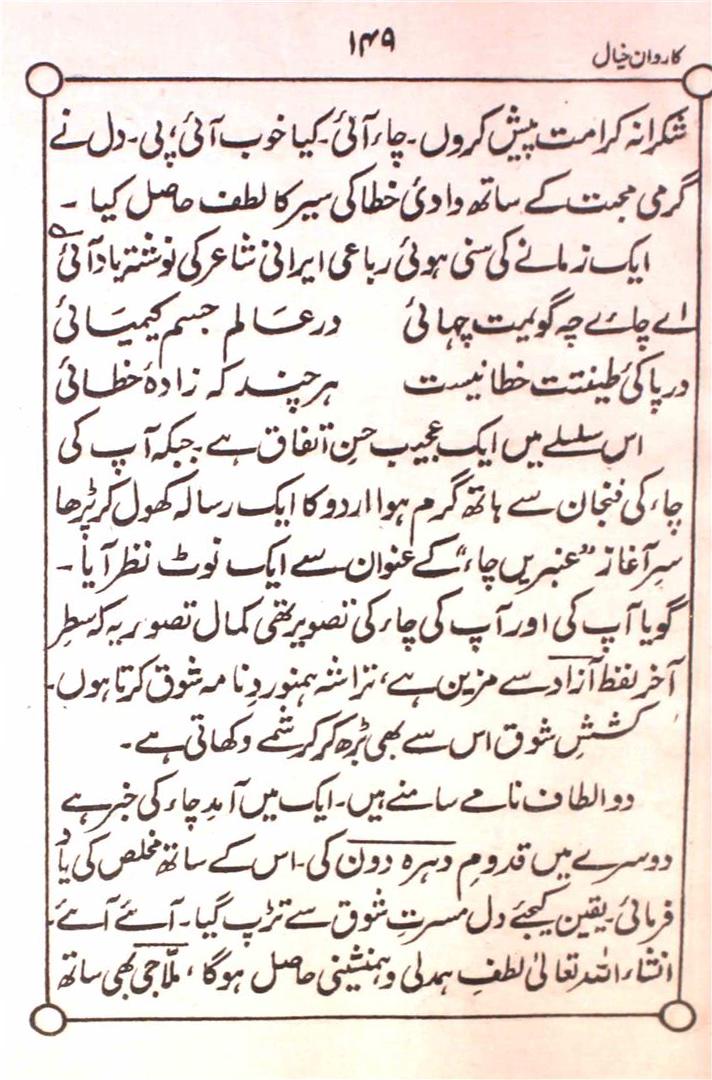 کاروان خیال
۱۴۹
شکرانہ کرامت پیش کروں۔ چاء آئی۔ کیا خوب آئی، پی۔ دل نے
گرمی محبت کے ساتھ وادیٔ خطا کی سیر کا لطف حاصل کیا ۔
ایک زمانے کی سنی ہوئی رباعی ایرانی شاعر کی نوشتر یاد آئی
اے چاۓ چہ گویمت چہائی درعالم جسم کیمیائی
درپاکیٔ طینتت خطانیست ہرچند کہ زادۂ خطائی
اس سلسلے میں ایک عجیب حسنِ اتفاق ہے۔ جبکہ آپ کی
چاء کی فنجان سے ہاتھ گرم ہوا اردو کا ایک رسالہ کھول کر پڑھا
سرِ آغاز ”عنبریں چاء“ کے عنوان سے ایک نوٹ نظر آیا ۔
گویا آپ کی اور آپ کی چاء کی تصویر تھی کمال تصویر یہ کہ سطرِ
آخر لفظ آزاد سے مزین ہے، تراشہ ہمنوردِ نامہ شوق کرتا ہوں۔
کششِ شوق اس سے بھی بڑھ کر کرشمے دکھاتی ہے۔
دو الطاف نامے سامنے ہیں۔ ایک میں آمدِ چاء کی خبر ہے
دوسرے میں قدومِ دہرہ دون کی۔ اس کے ساتھ مخلص کی یاد
فرمائی۔ یقین کیجئے دل مسرتِ شوق سے تڑپ گیا۔ آئے آئے۔
انشاء اللہ تعالیٰ لطفِ ہمدلی وہمنشینی حاصل ہوگا، ملّا جی بھی ساتھ